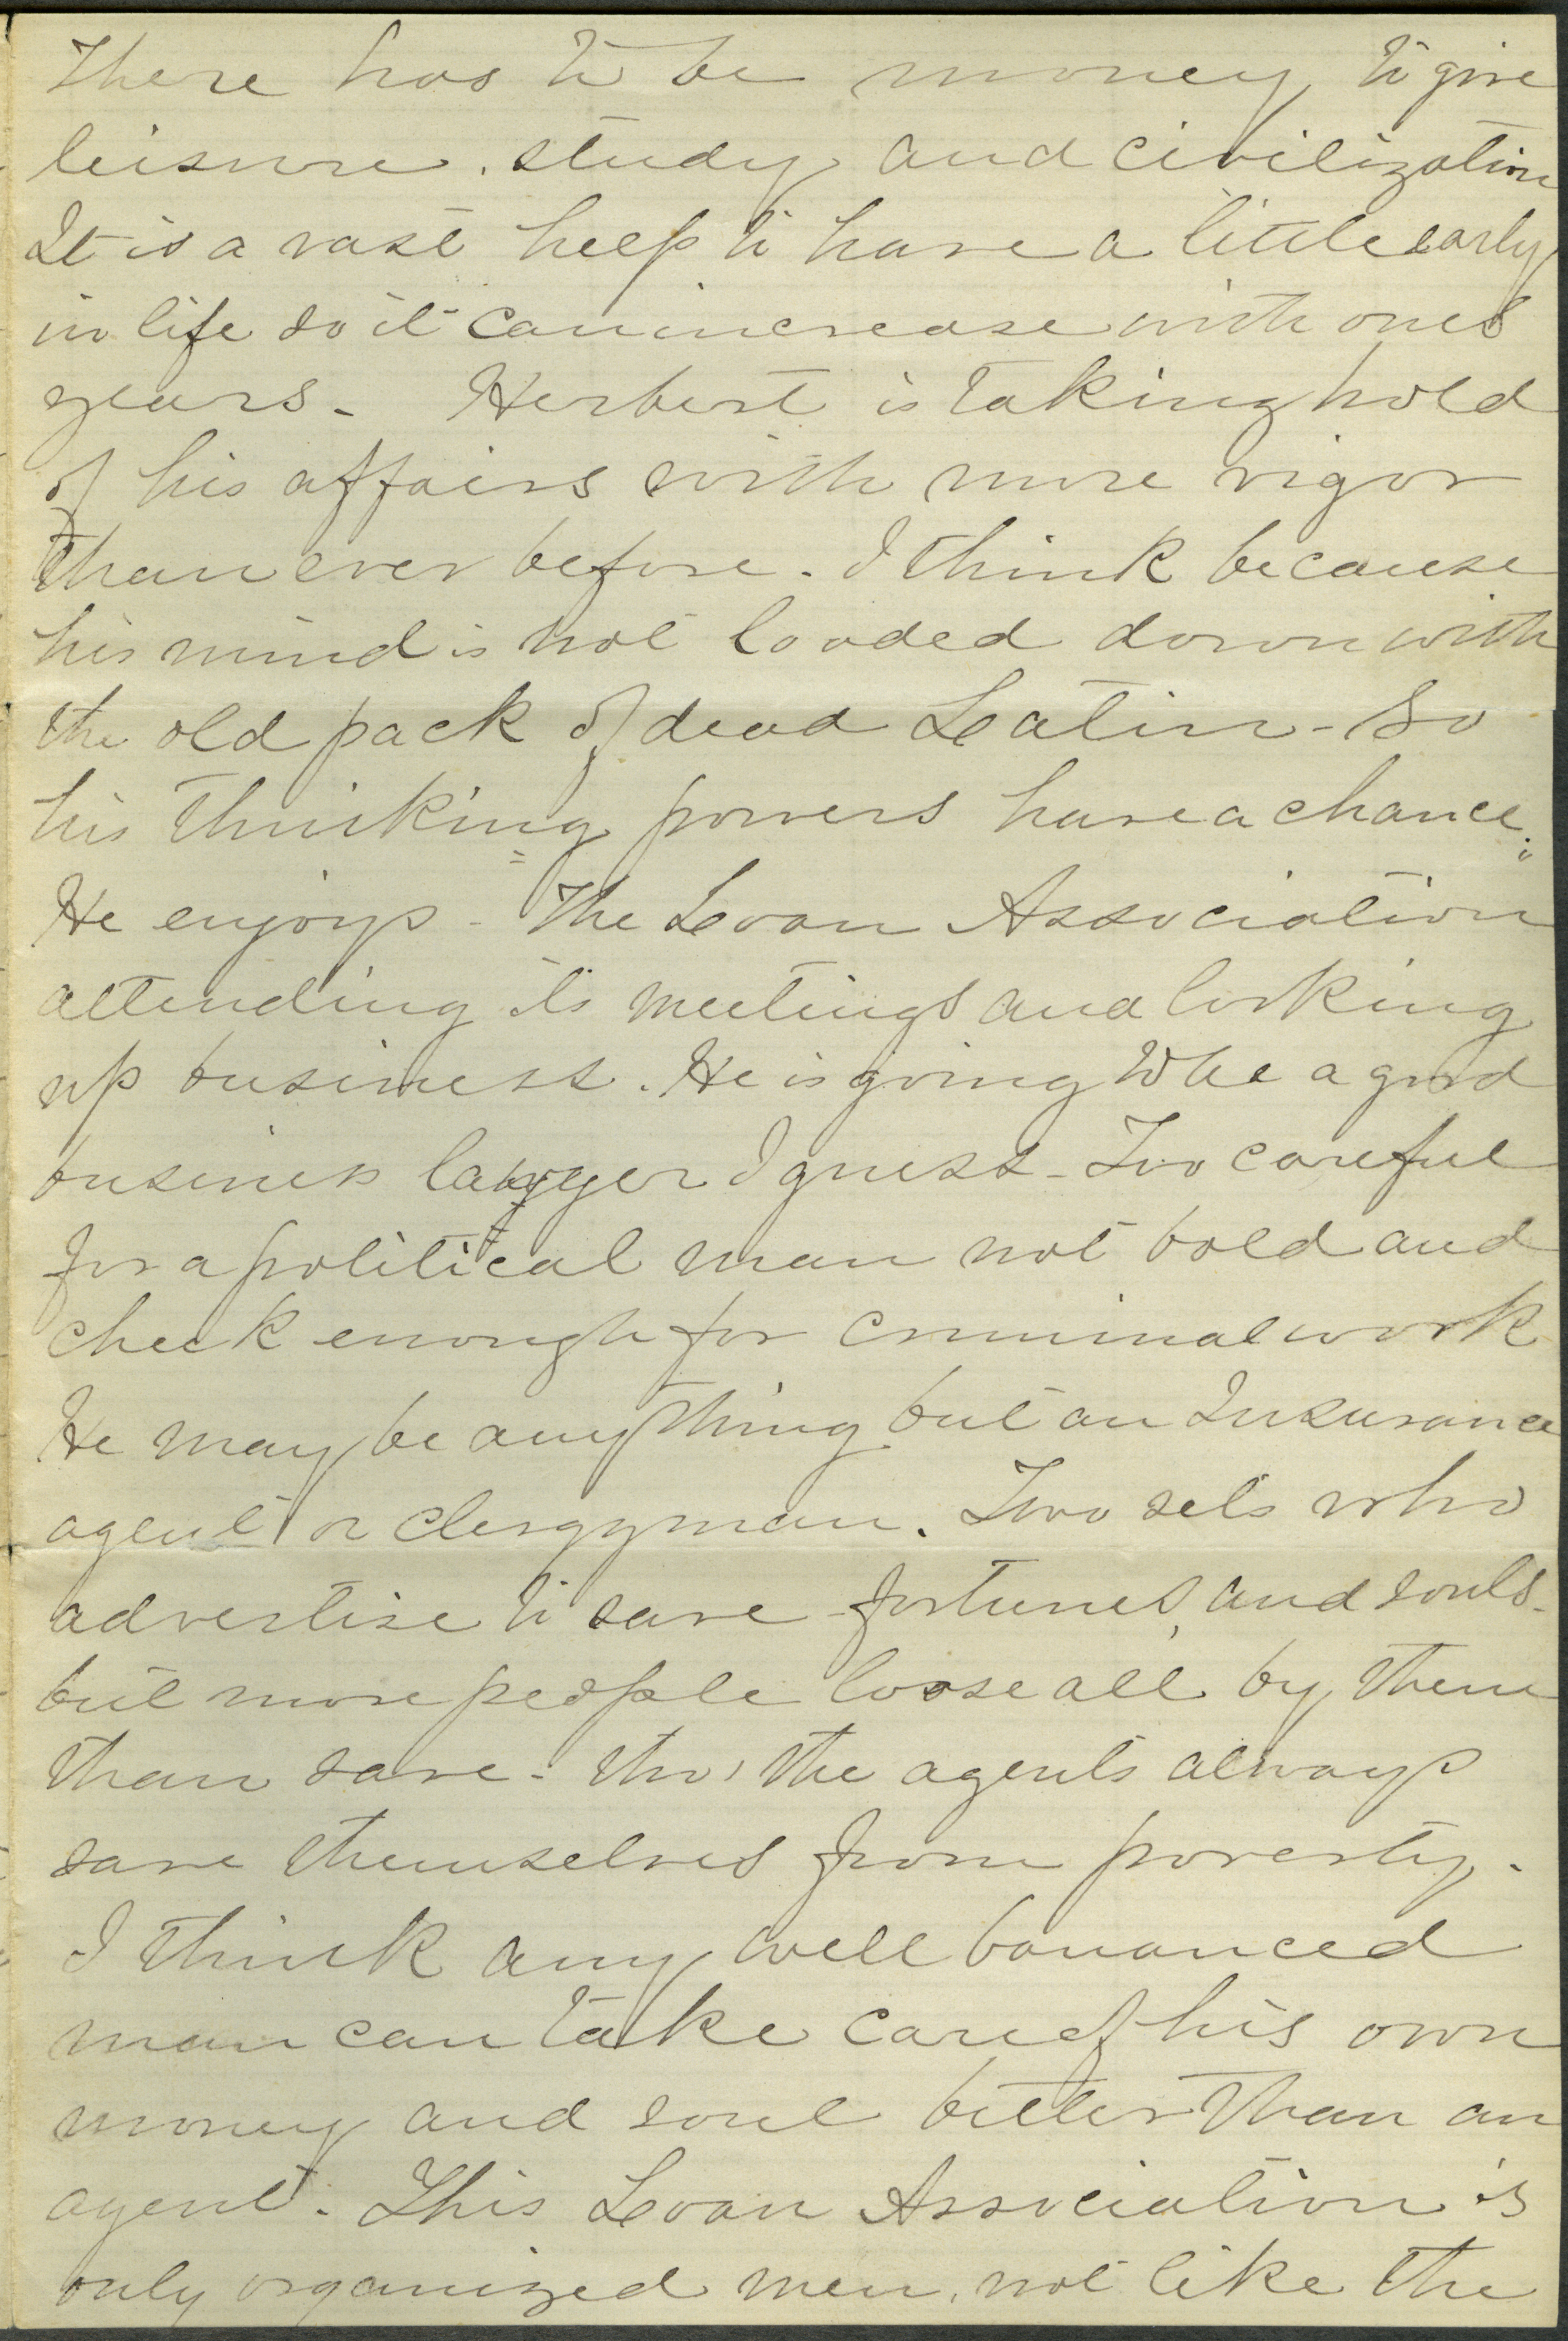 There has to be money to give
leisure. study and civilization
It is a vast help to have a little early
in life so it can increase with ones
years - Herbert is taking hold
of his affairs with more vigor
than ever before. I think because
his mind is not loaded down with
the old pack of dead Latin - so
his thinking powers have a chance.
He enjoys - The Loan Association
attending its meetings and looking
up business. He is going to be a good
business lawyer I guess - Too careful
for a political man not bold and
cheek enough for criminal work
He may be anything but an Insurance
agent or clergyman. Two sets who
advertise to save fortunes, and souls -
but more people loose all by them
than save - tho' the agents always
save themselves from poverty.
I think any well bananced
man can take care of his own
money and soul better than an
agent. This Loan Association is
only organized men, not like the